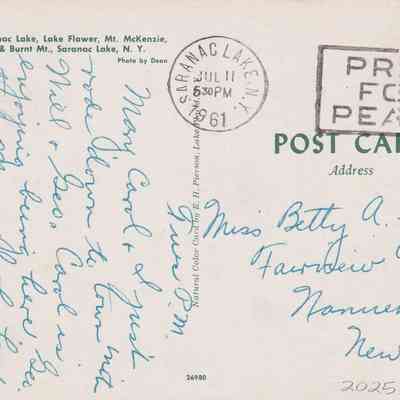 nac Lake, Lake Flower, Mt. McKenzie,
& Burnt Mt., Saranac Lake, N. Y.
Photo by Dean
SARANAC LAKE, N.Y.
JUL 11
5 30 PM
1961
PR
FO
PEA
POST CA
Address
Tues P.M.
Mary Carol & I just
rode down to town with
Neil & Geo. Carol is
enjoying being here
Natural Color Card by E. H. Pierson, Lake
Miss Betty A.
Fairview
Nanue
New
26980
2025